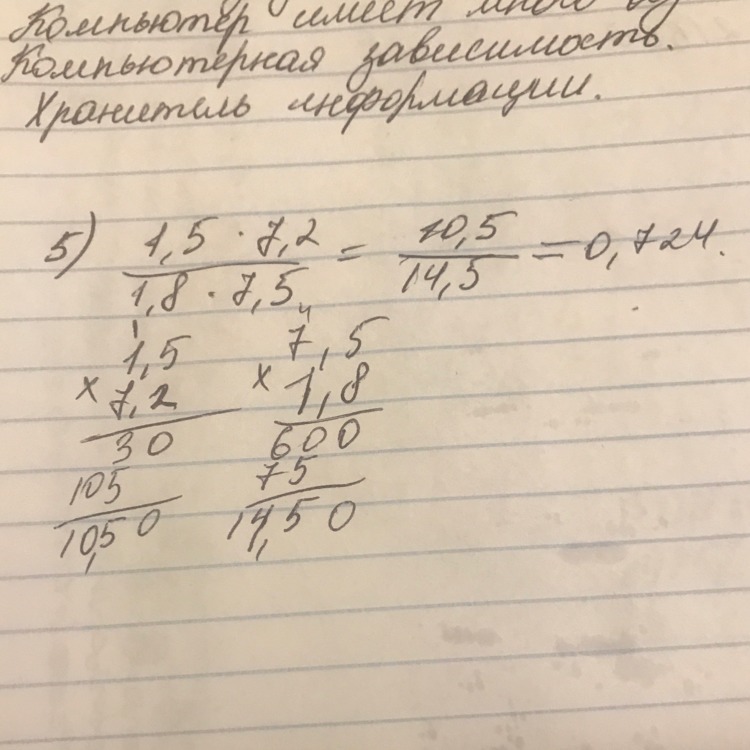 Компьютер имеет много
Компьютерная зависимость.
Хранитель информации.
5) 1,5 · 7,2 / 1,8 · 7,5 = 10,5 / 14,5 = 0,724.
1 4
1,5 7,5
x 7,2 x 1,8
30 600
105 75
10,50 14,50